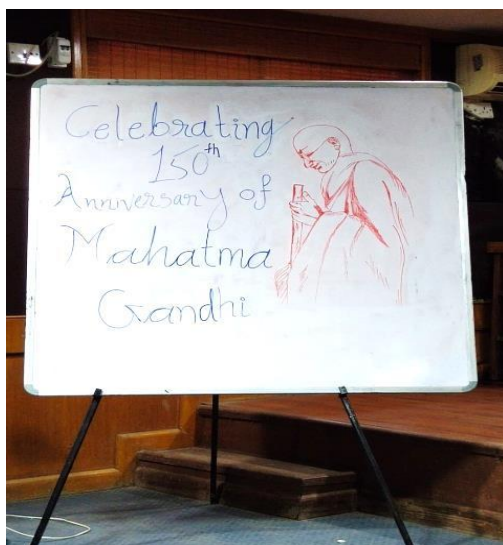 Celebrating
150th
Anniversary of
Mahatma
Gandhi